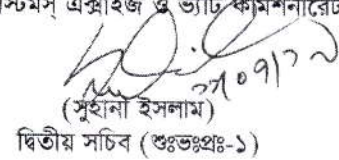 কাস্টমস্ এক্সাইজ ও ভ্যাট কমিশনারেট
২৭/০৭/১১
(সুহানা ইসলাম)
দ্বিতীয় সচিব (শুঃভঃপ্রঃ-১)